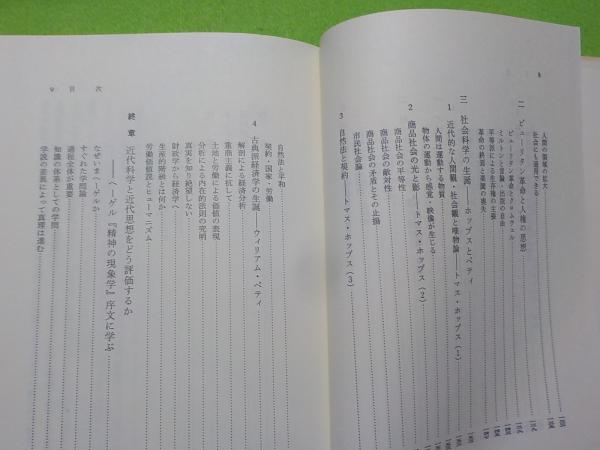 8
人間の領域の拡大
社会にも適用できる
二 ピューリタン革命と人権の思想
ピューリタン革命とクロムウェル
ミルトンと言論・出版の自由
平等派による生存権の主張
革命の終焉と楽園の喪失
三 社会科学の生誕――ホッブスとペティ
1 近代的な人間観・社会観と唯物論――トマス・ホッブス（1）
人間は運動する物質
物体の運動から感覚・映像が生じる
2 商品社会の光と影――トマス・ホッブス（2）
商品社会の平等性
商品社会の敵対性
商品社会の矛盾とその止揚
市民社会論
3 自然法と契約――トマス・ホッブス（3）
9 目 次
自然法と平和
契約・国家・労働
4 古典派経済学の生誕――ウィリアム・ペティ
解剖による経済分析
重商主義に抗して
土地と労働による価値の表現
分析による内在的法則の究明
真実を知り絶望しない
財政学から経済学へ
生産的階級とは何か
労働価値説とヒューマニズム
終章 近代科学と近代思想をどう評価するか
――ヘーゲル『精神の現象学』序文に学ぶ
なぜいまヘーゲルか
すぐれた学問論
過程全体が重要
知識の体系としての学問
学説の差異によって真理は進む